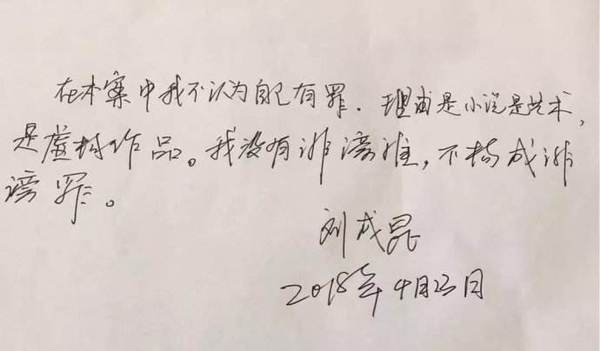 在本案中我不认为自己有罪.理由是小说是艺术,
是虚构作品。我没有诽谤谁,不构成诽
谤罪。
刘成昆
2018年4月23日